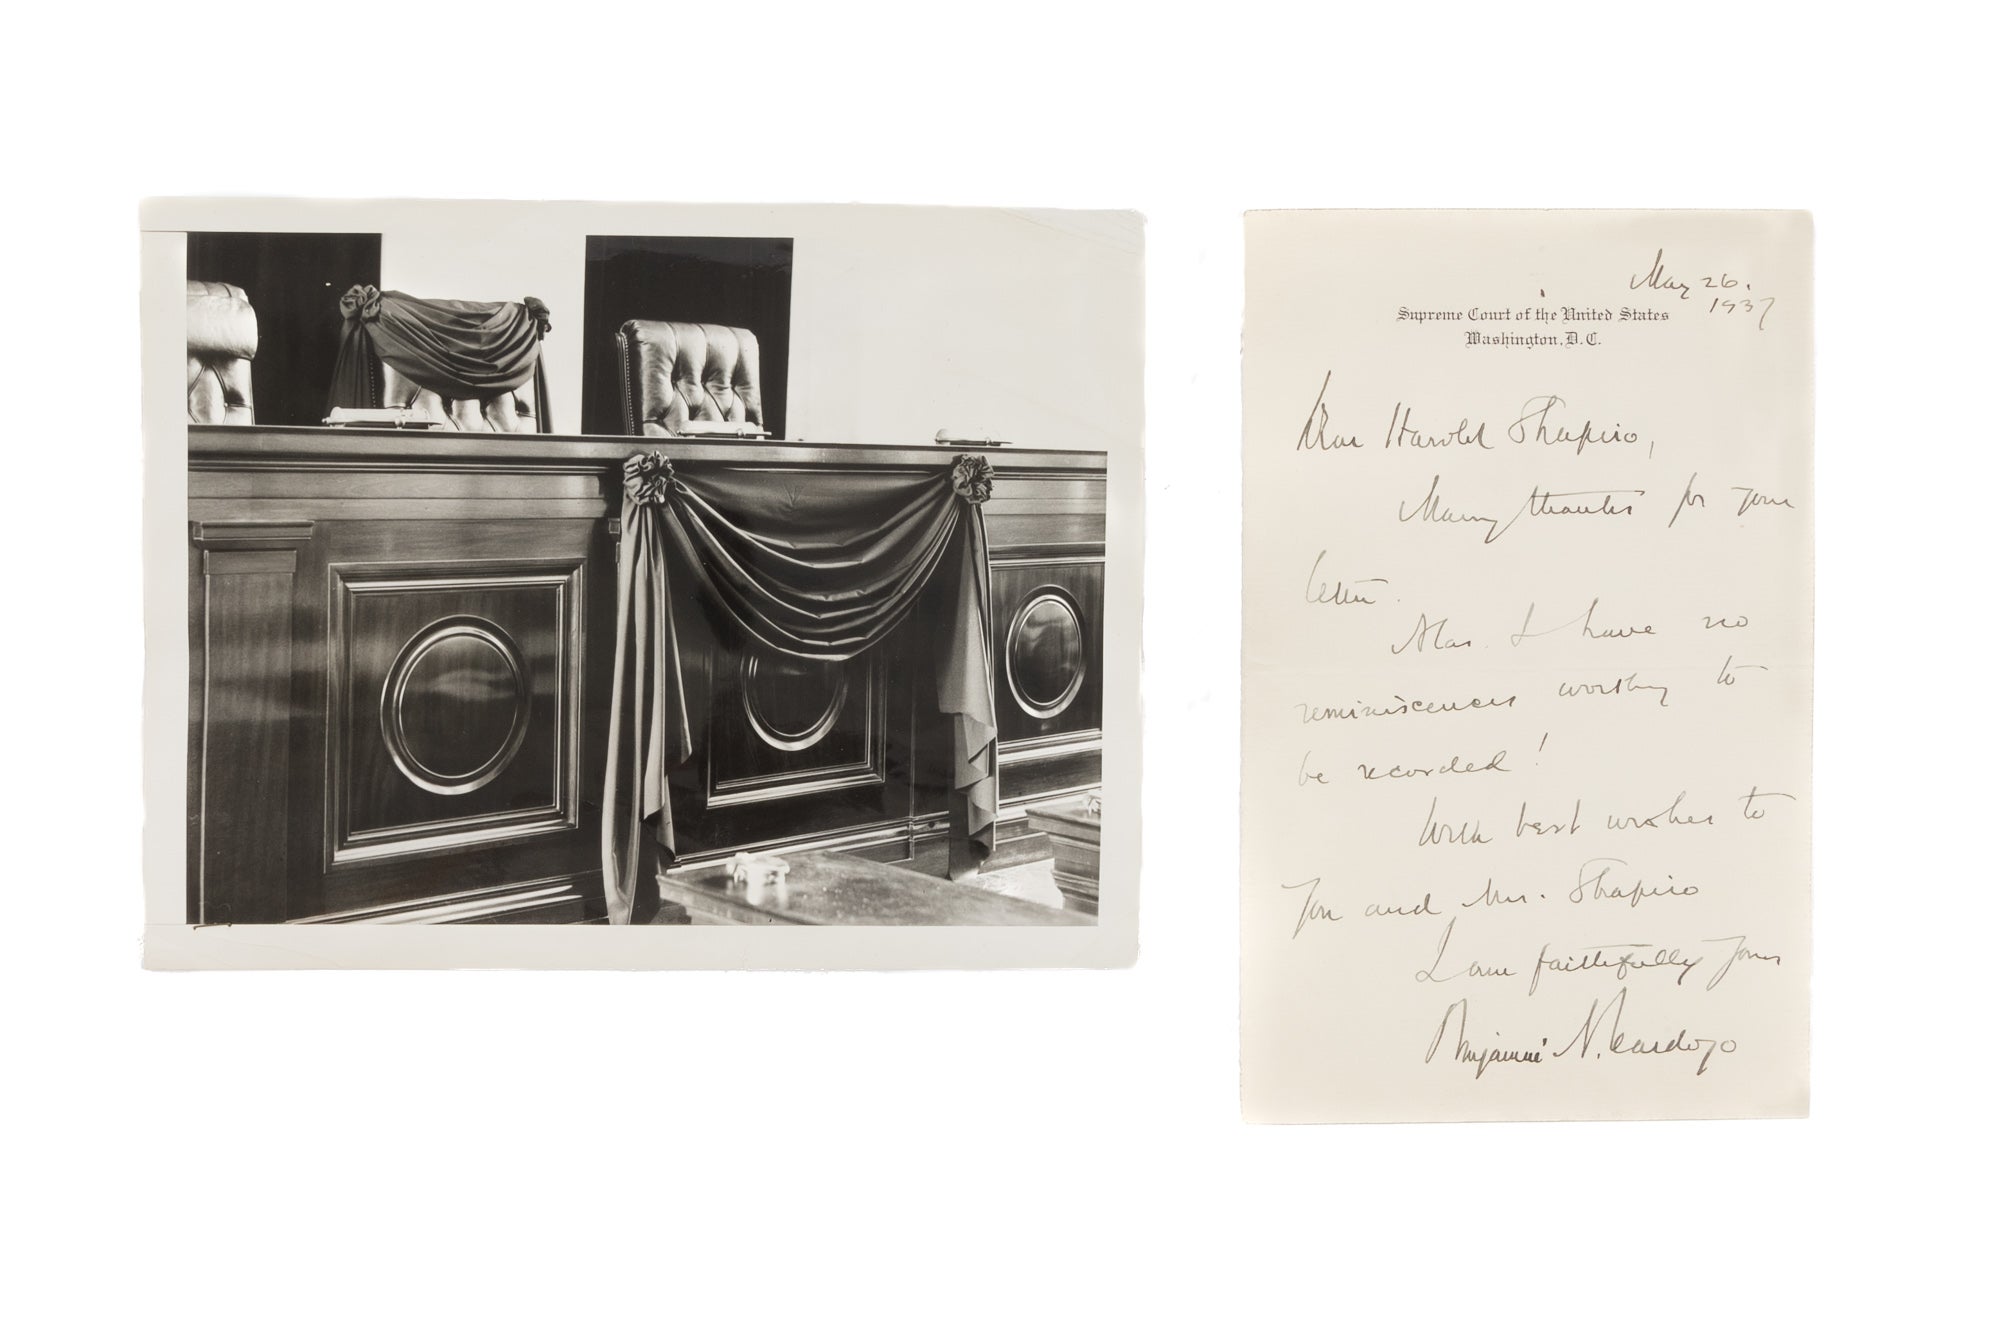 May 26.
1937
Supreme Court of the United States
Washington, D. C.
Dear Harold Shapiro,
Many thanks for your
letter.
Alas. I have no
reminiscences worthy to
be recorded!
With best wishes to
you and Mrs. Shapiro
I am faithfully yours
Benjamin N. Cardozo